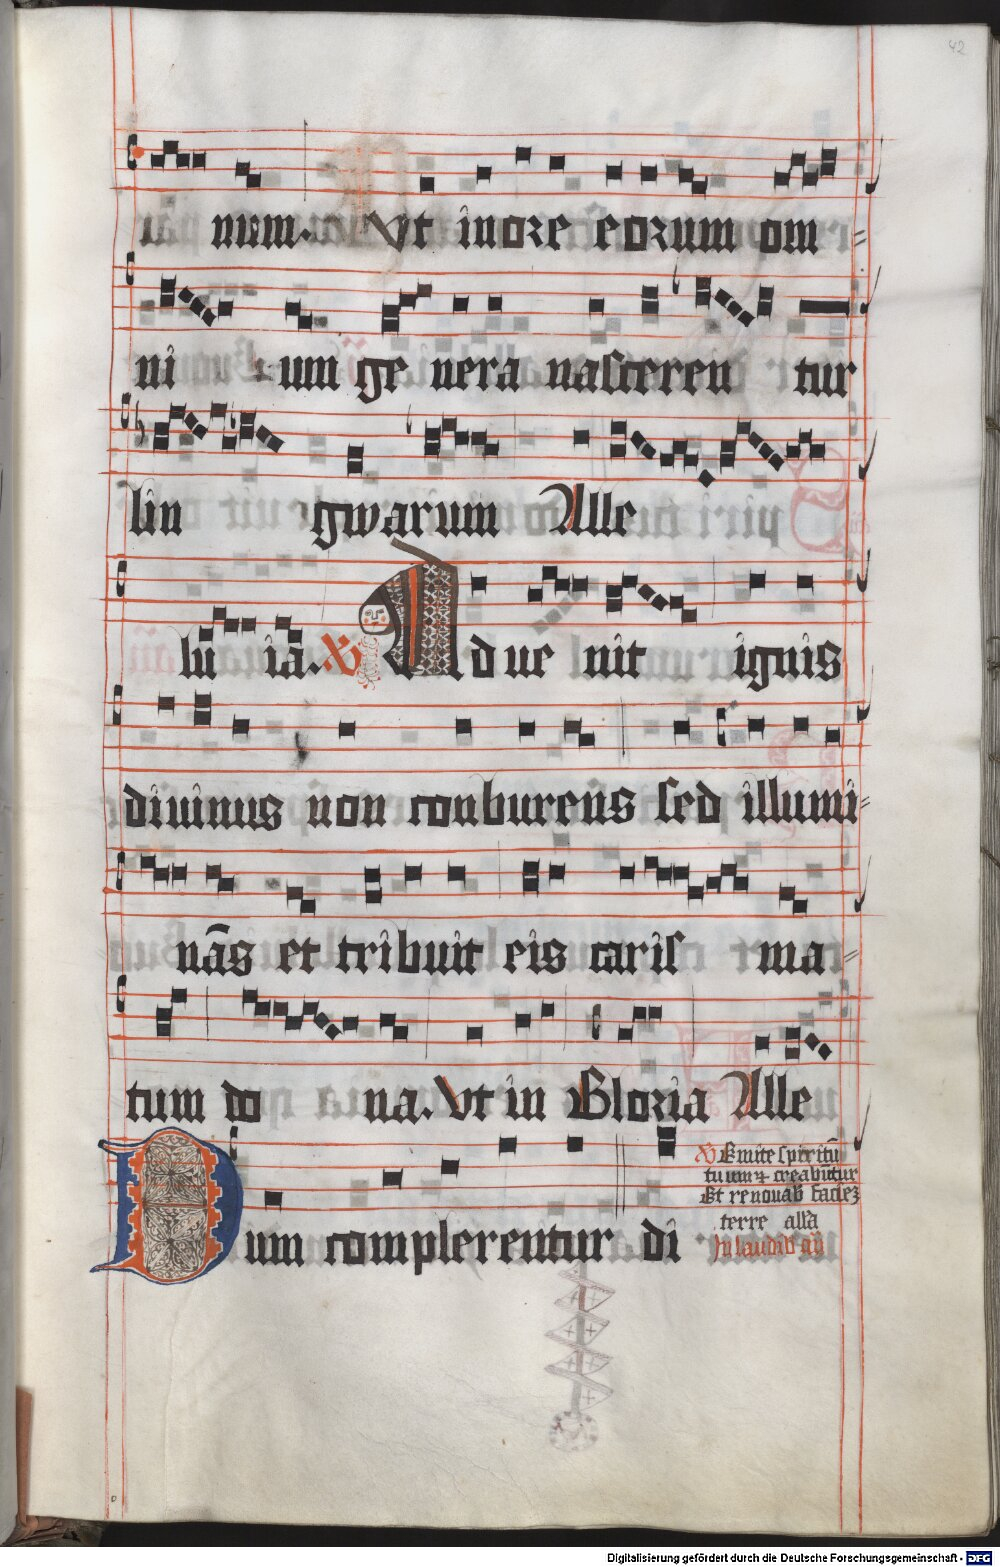 42
num. Vt in ore eorum om=
ni um ge nera nasceren tur
lin gwarum Alle
lu ia. ℣ Adue nit ignis
diuinus non conburens sed illumi=
nās et tribuit eis caris ma=
tum do na. Vt in Gloria Alle
Dum complerentur di
℣ Emite spiritū
tuum ⁊ creabūtur
Et renouab faciē
terre alla
In laudib añ
Digitalisierung gefördert durch die Deutsche Forschungsgemeinschaft - DFG